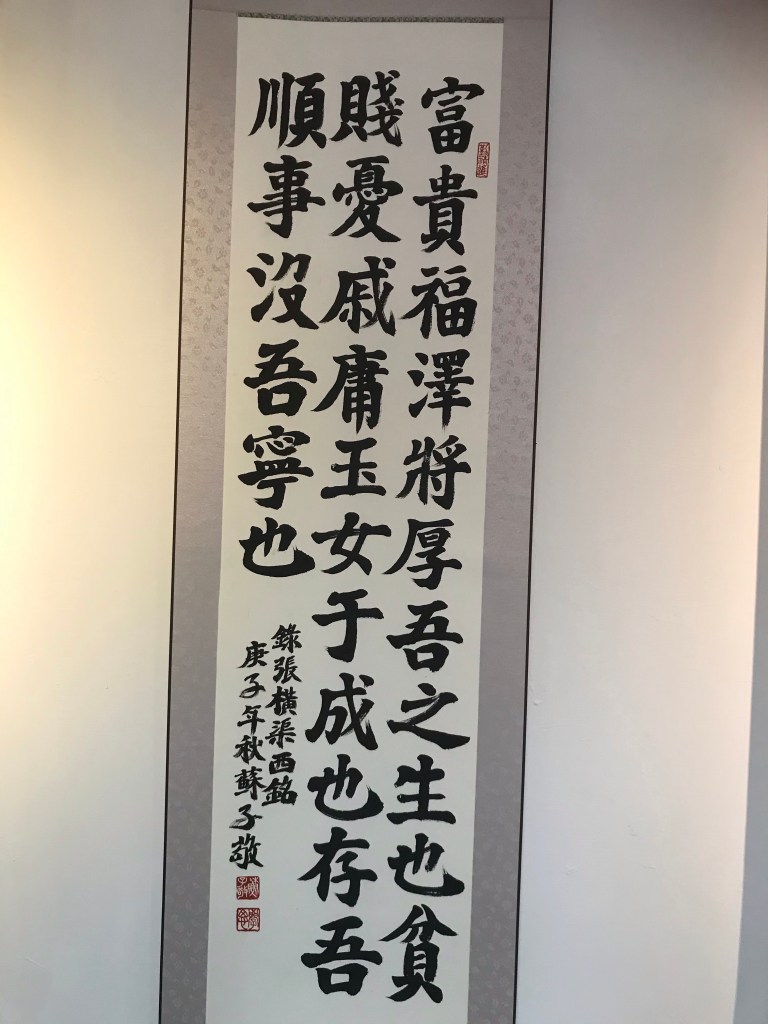 富貴福澤將厚吾之生也貧
賤憂戚庸玉女于成也存吾
順事沒吾寧也
錄張橫渠西銘
庚子年秋蘇子敬